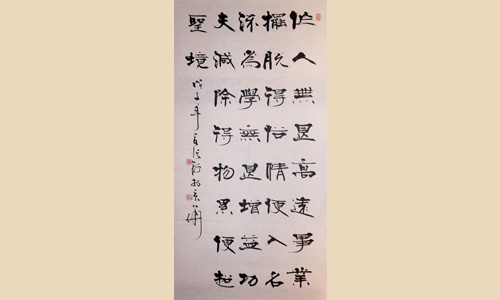 作人無甚高遠事業
擺脫得俗情便入名
流為學無甚增益功
夫減除得物累便超
聖境
戊子年夏